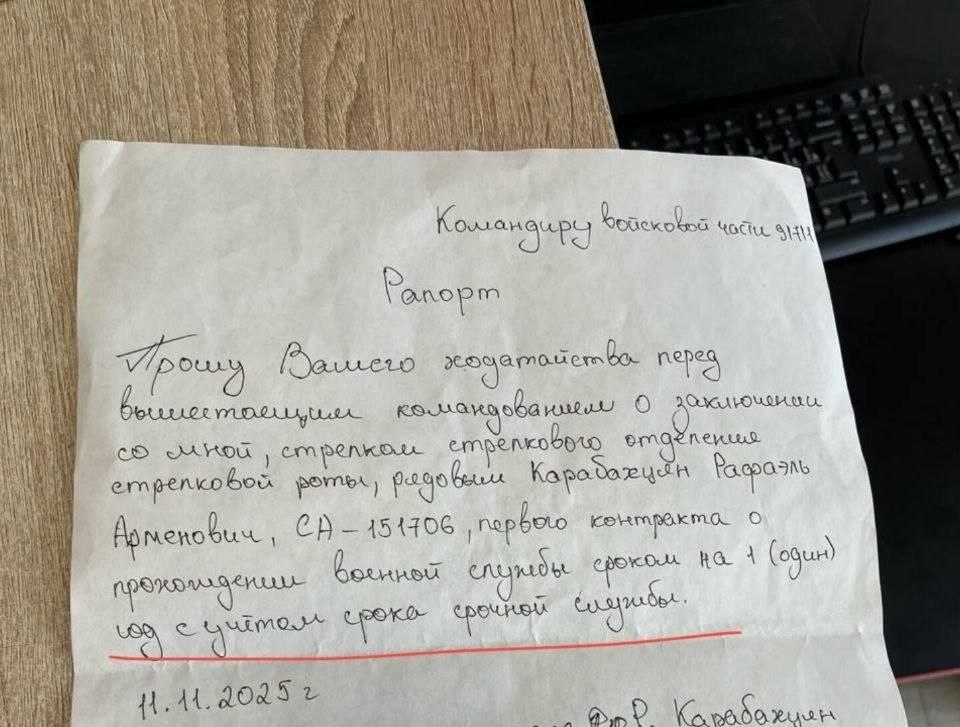 Командиру войсковой части 91711
Рапорт
Прошу Вашего ходатайства перед
вышестаещим командованием о заключении
со мной, стрелком стрелкового отделения
стрелковой роты, рядовым Карабахцян Рафаэль
Арменович, СА-151706, первого контракта о
прохождении военной службы сроком на 1 (один)
год с учётом срока срочной службы.
11.11.2025 г
Р. Карабахцян